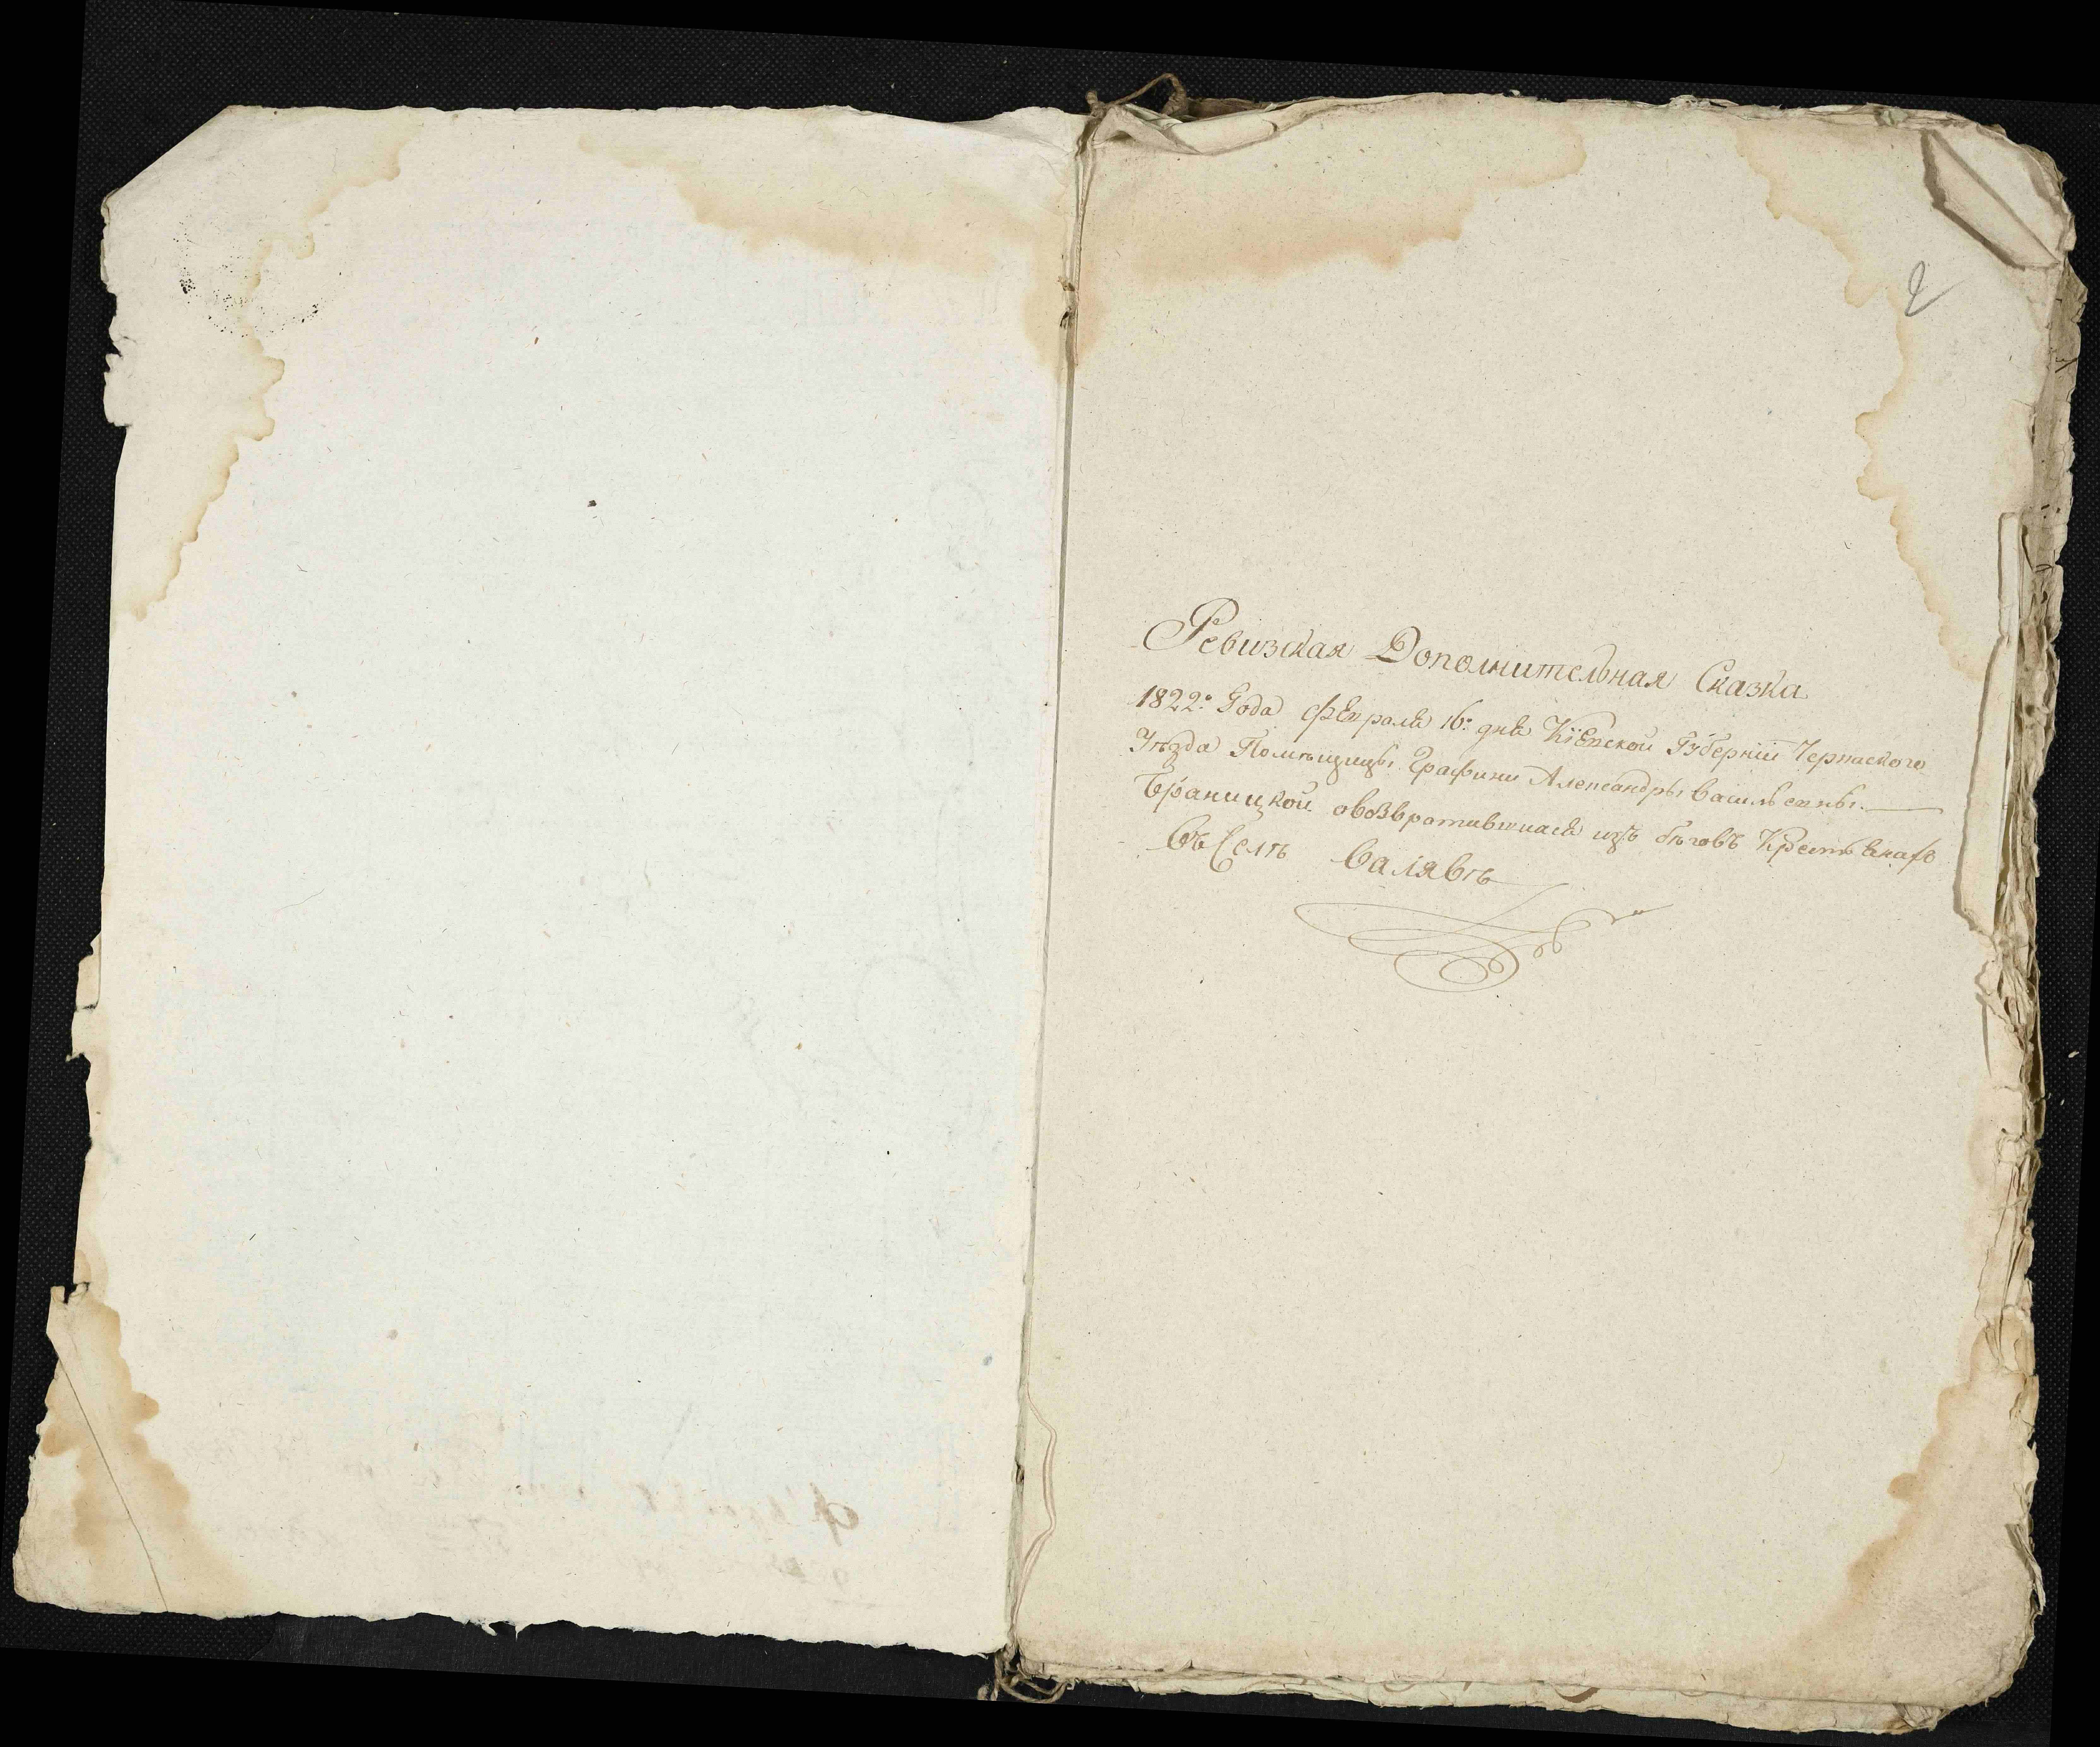 2
Ревизская Дополнительная Сказка
1822:º Года февраля 16:º дня Кіевской Губерніи Черкаского
Уѣзда Помѣщицы Графини Александры Васильевны
Браницкой овозвратившихся изъ бѣговъ Крестьянахъ
Въ Селѣ Валявѣ